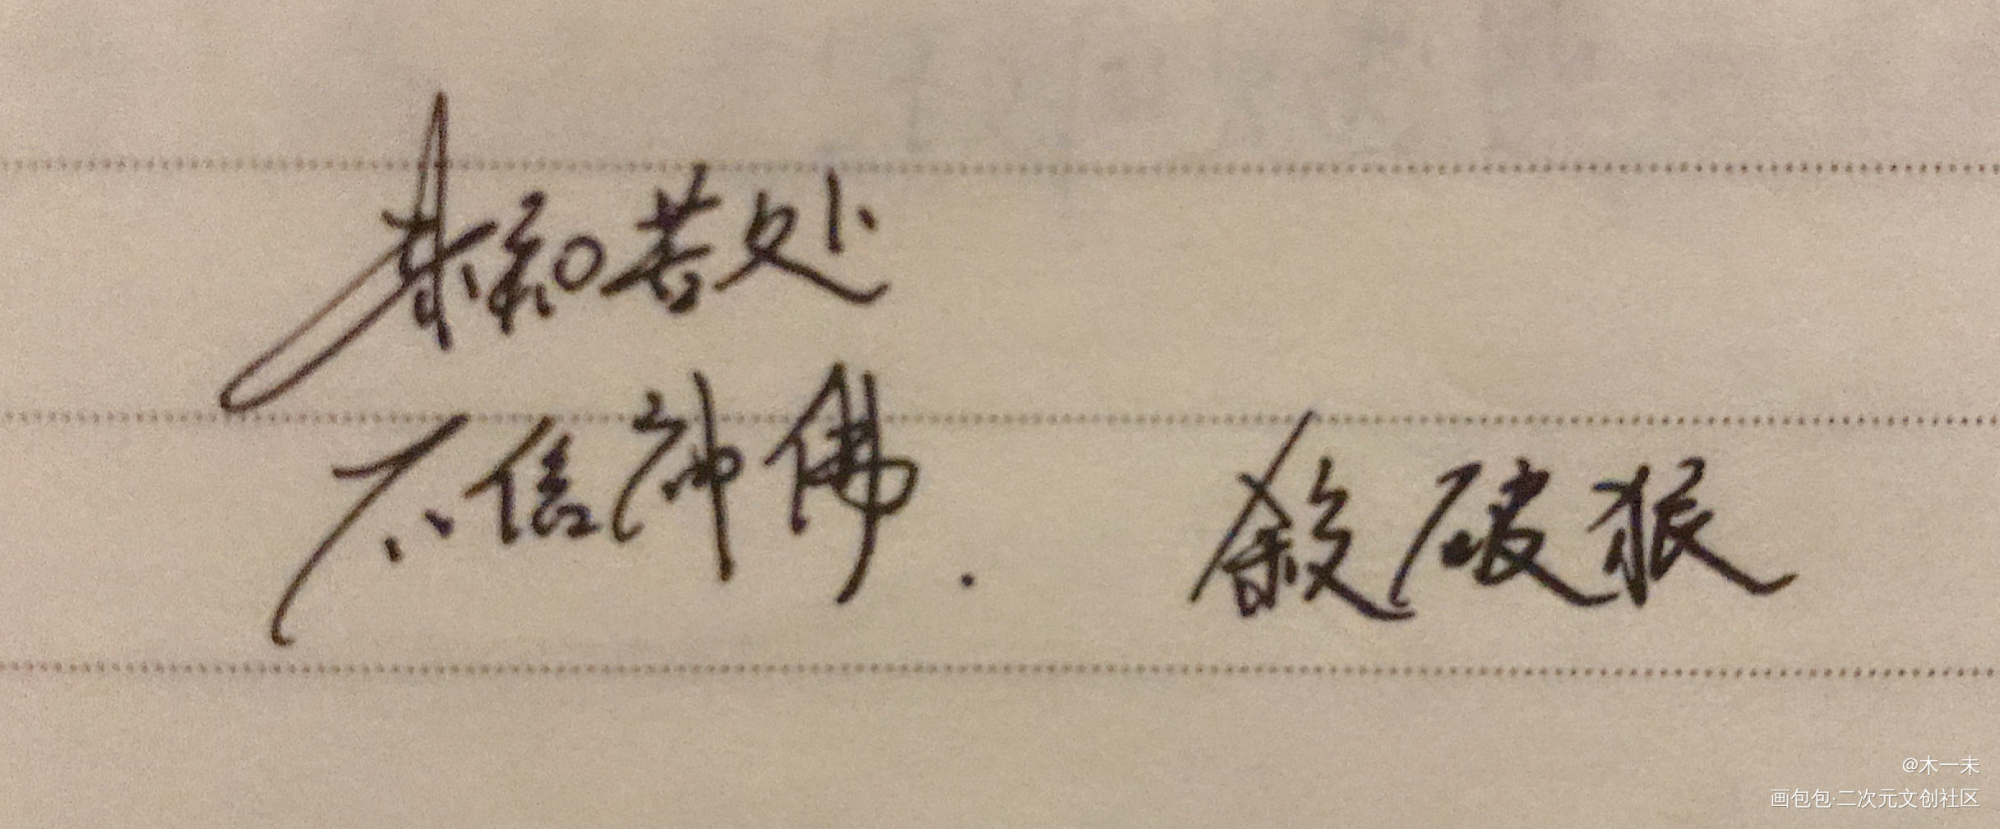 未知苦处
不信神佛.
殺破狼
@木一未
画包包·二次元文创社区